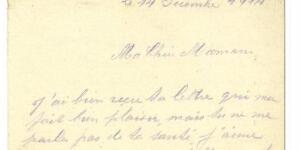 le 14 Décembre 1914
Ma Chère Maman
J'ai bien reçu ta lettre qui me
fait bien plaisir, mais tu ne me
parles pas de ta santé j'aime